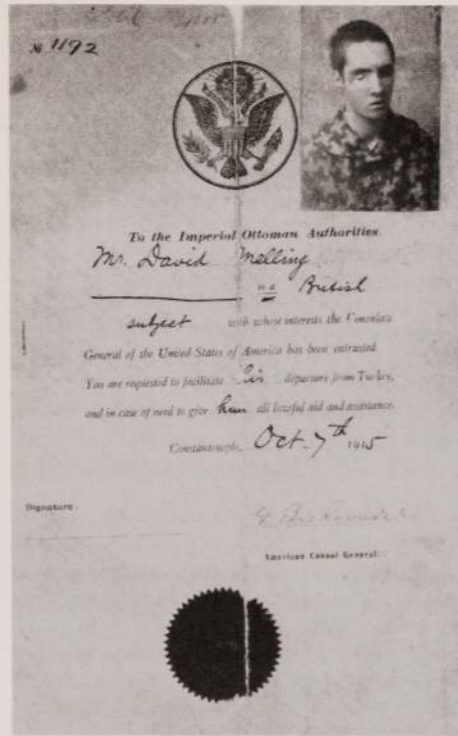 № 1192
To the Imperial Ottoman Authorities.
Mr. David Melling
is a British
subject with whose interests the Consulate
General of the United States of America has been entrusted.
You are requested to facilitate his departure from Turkey,
and in case of need to give him all lawful aid and assistance.
Constantinople, Oct. 7th 1915
Signature:
American Consul General.